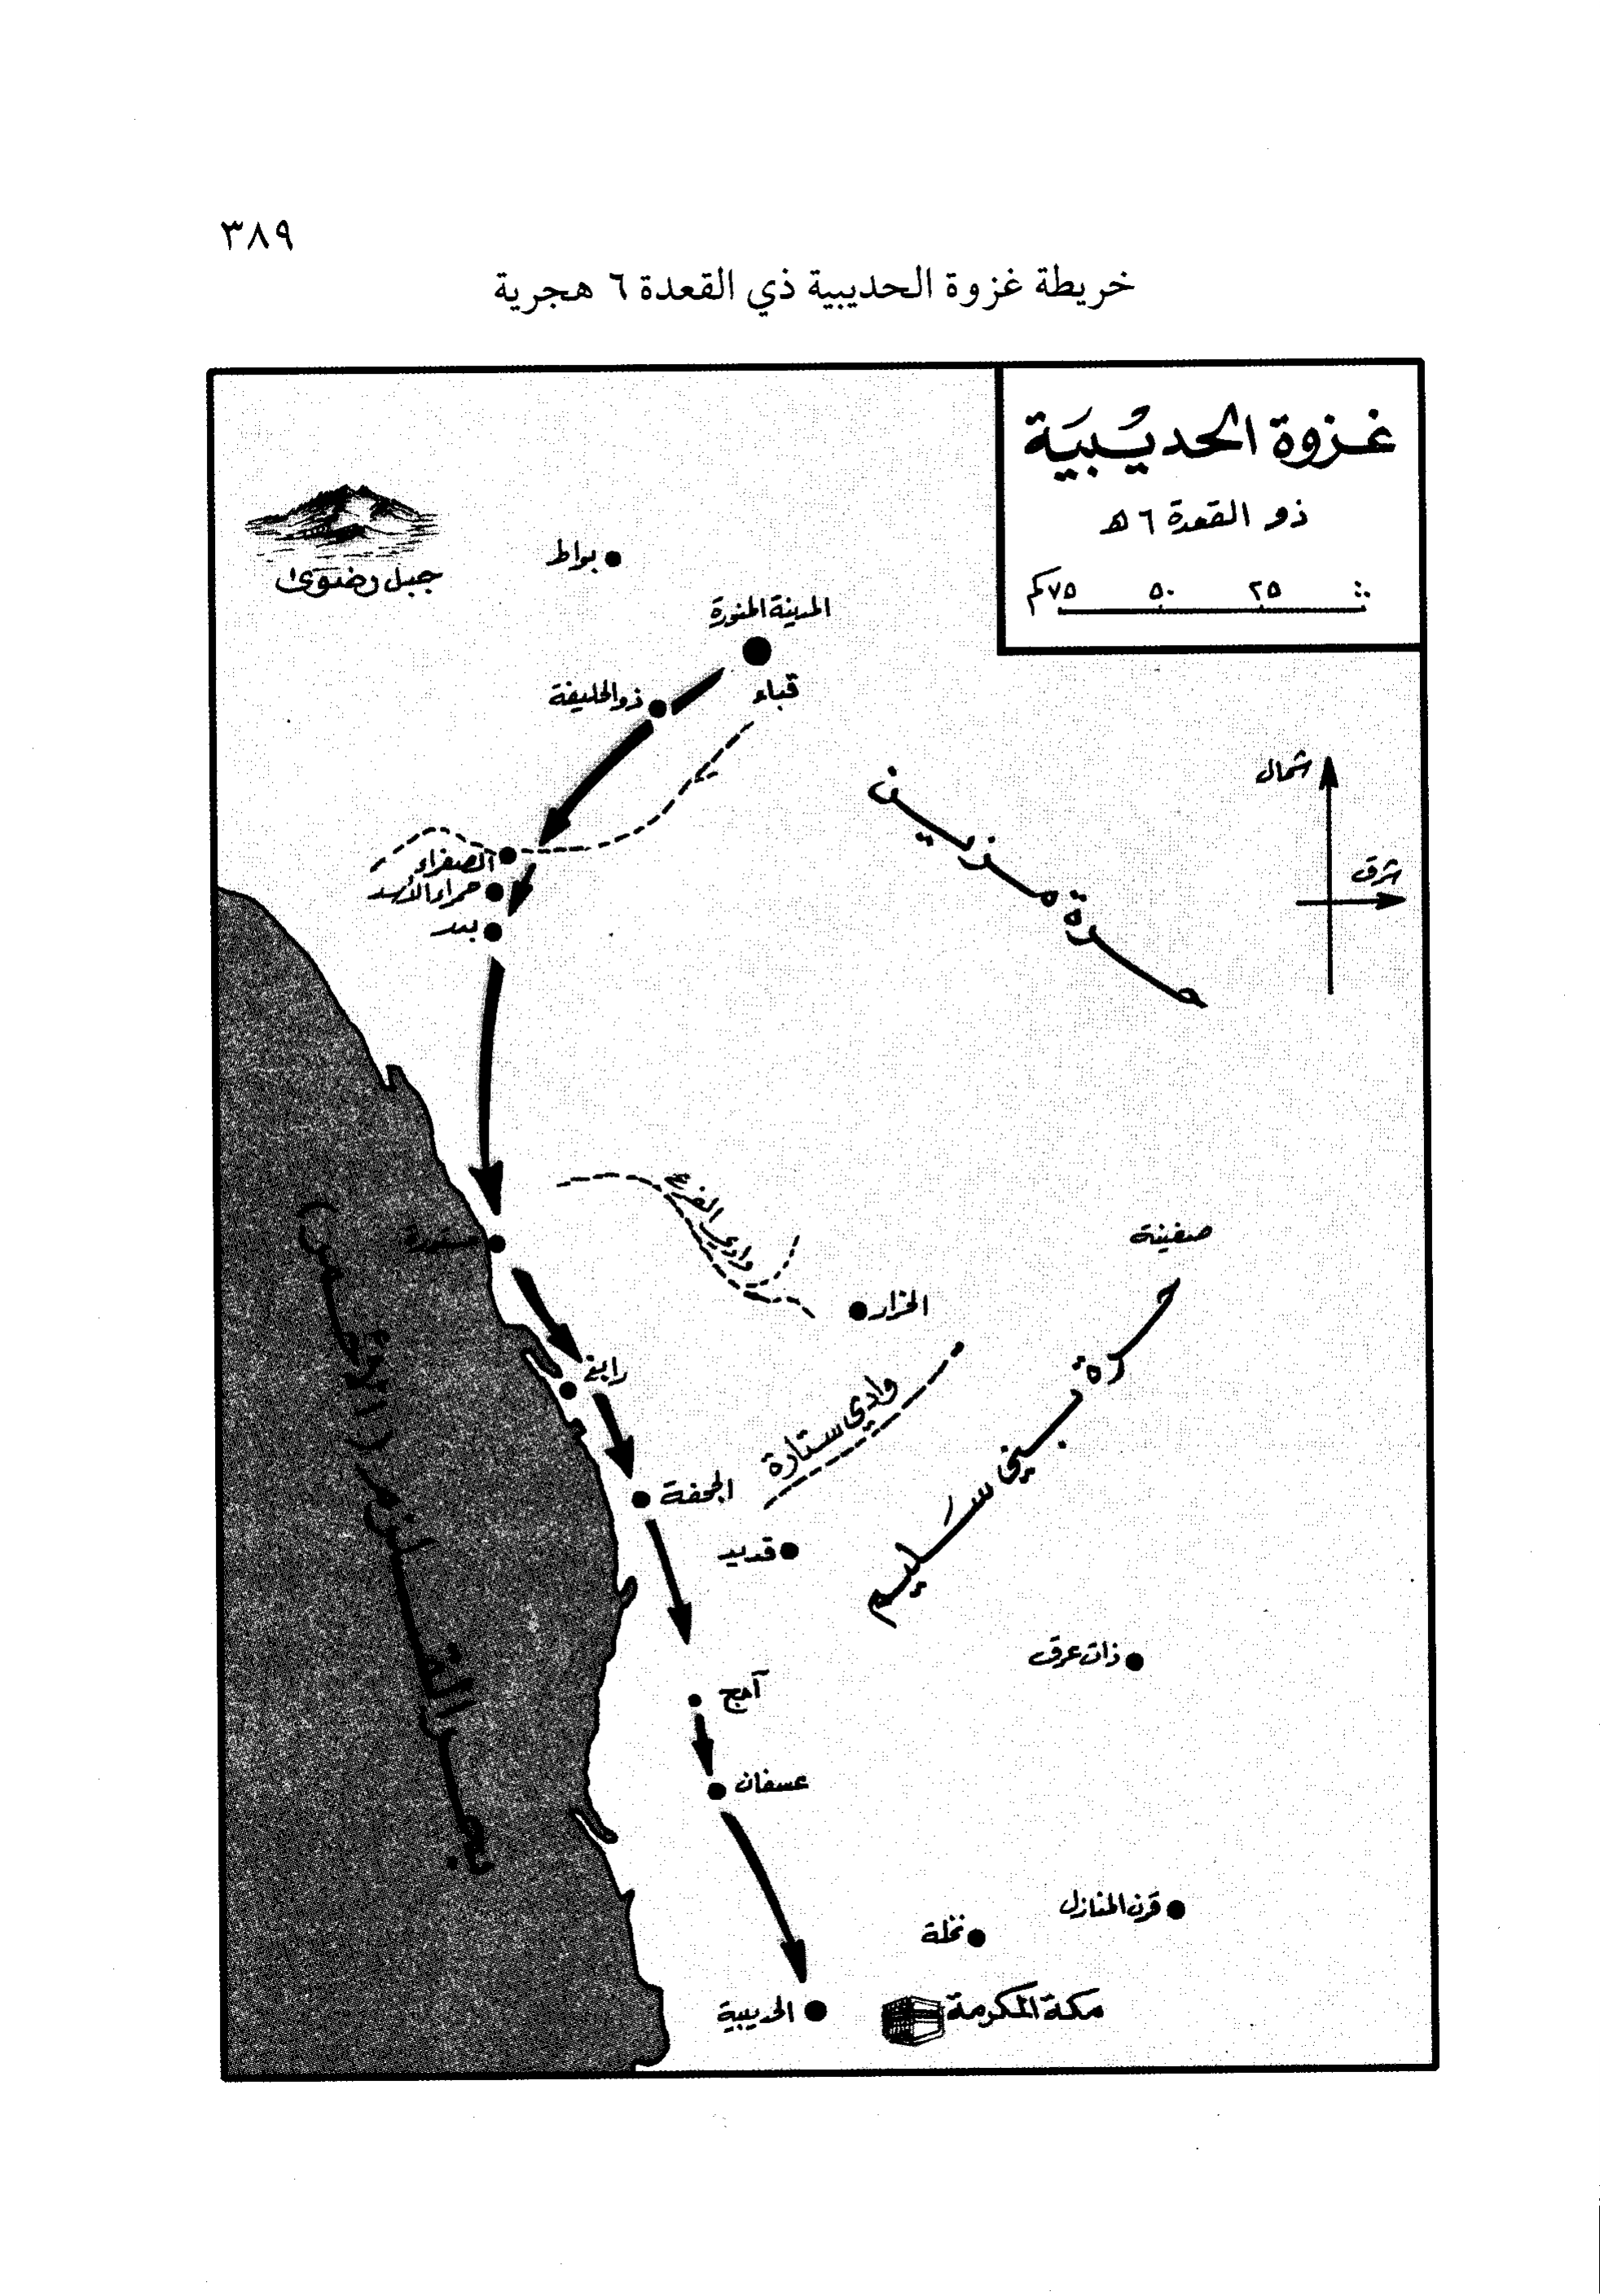 ٣٨٩
خريطة غزوة الحديبية ذي القعدة ٦ هجرية
غزوة الحديْبيَة
ذو القعدة ٦ ه
٠ ٢٥ ٥٠ ٧٥ كم
جبل رضوى
بواط
المدينة المنورة
ذو الحليفة
قباء
شمال
شرق
حرة مزيين
الصفراء
حمراء الأسد
بدر
مستورة
وادي الفرع
صفينة
الخرار
رابغ
وادي ستارة
حرة بني سَليم
الجحفة
قديد
ذات عرق
آمج
عسفان
قرن المنازل
نخلة
الحديبية
مكة المكرمة
بحر القلزم (الأحمر)